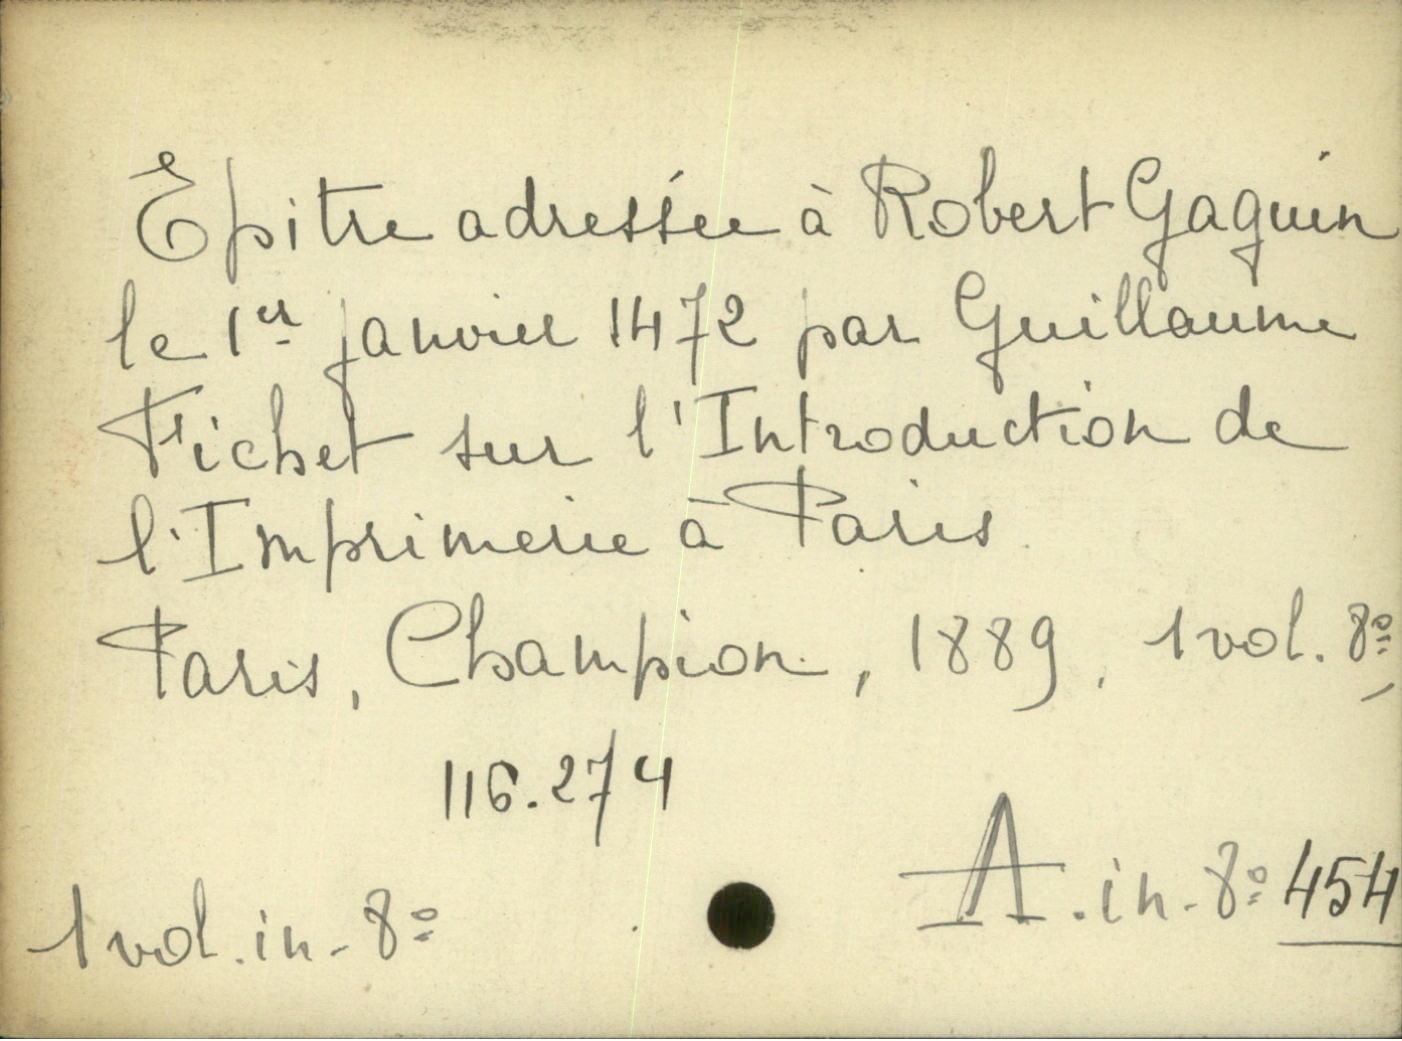 Epitre adressée à Robert Gaguin
le 1er janvier 1472 par Guillaume
Fichet sur l'Introduction de
l'Imprimerie à Paris
Paris, Champion, 1889, 1 vol. 8º
116.274
A. in-8º 454
1 vol. in-8º